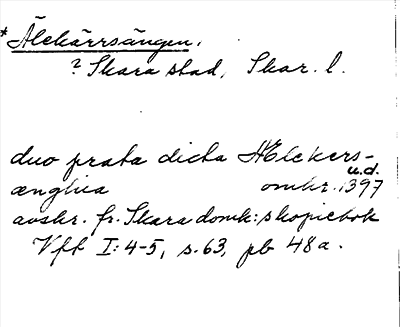 *Älekärrsängen.
? Skara stad, Skar. l.
duo prata dictaÆlekers-
u.d.
ænghia omkr. 1397
avskr. fr. Skara domk:s kopiebok
Vff I: 4-5, s. 63, pb 48a.